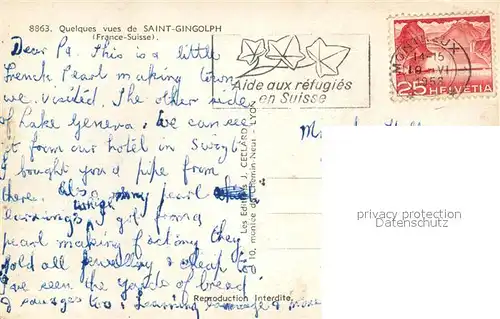 8863. Quelques vues de SAINT-GINGOLPH
(France-Suisse).
Dear Pa. This is a little
French Pearl making town
we visited. The other side
of Lake Geneva. We can see
it from our hotel in
I bought you a pipe from
there. Also my pearl
earrings I got from a
pearl making factory they
sold all jewellry & cheap too
I've seen the yards of bread
& sausages too. Learning & more
Reproduction Interdite.
Les Editions J. CELLARD
10, montée du Chemin-Neuf - LYON
Aide aux réfugiés
en Suisse
MONTREUX
14-15
19 VI
1958
25 HELVETIA
privacy protection
Datenschutz